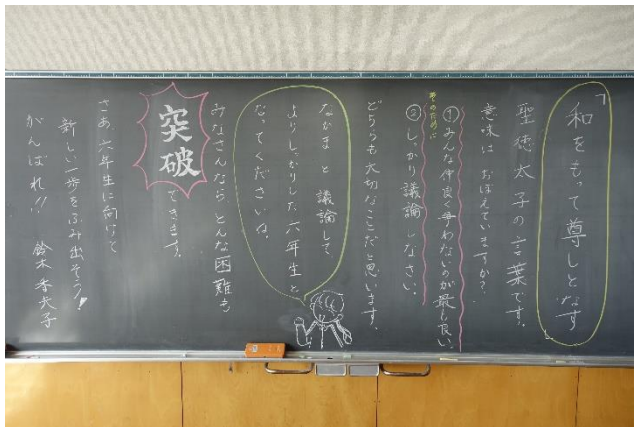 「和をもって尊しとなす
聖徳太子の言葉です。
意味は おぼえていますか?
①みんな仲良く争わないのが最も良い。
そのために
②しっかり議論しなさい。
どちらも大切なことだと思います。
なかまと 議論して
よりしっかりした六年生と
なってくださいね。
みなさんなら、どんな困難も
突破
できます。
さあ、六年生に向けて
新しい一歩をふみ出そう!
がんばれ!! 鈴木